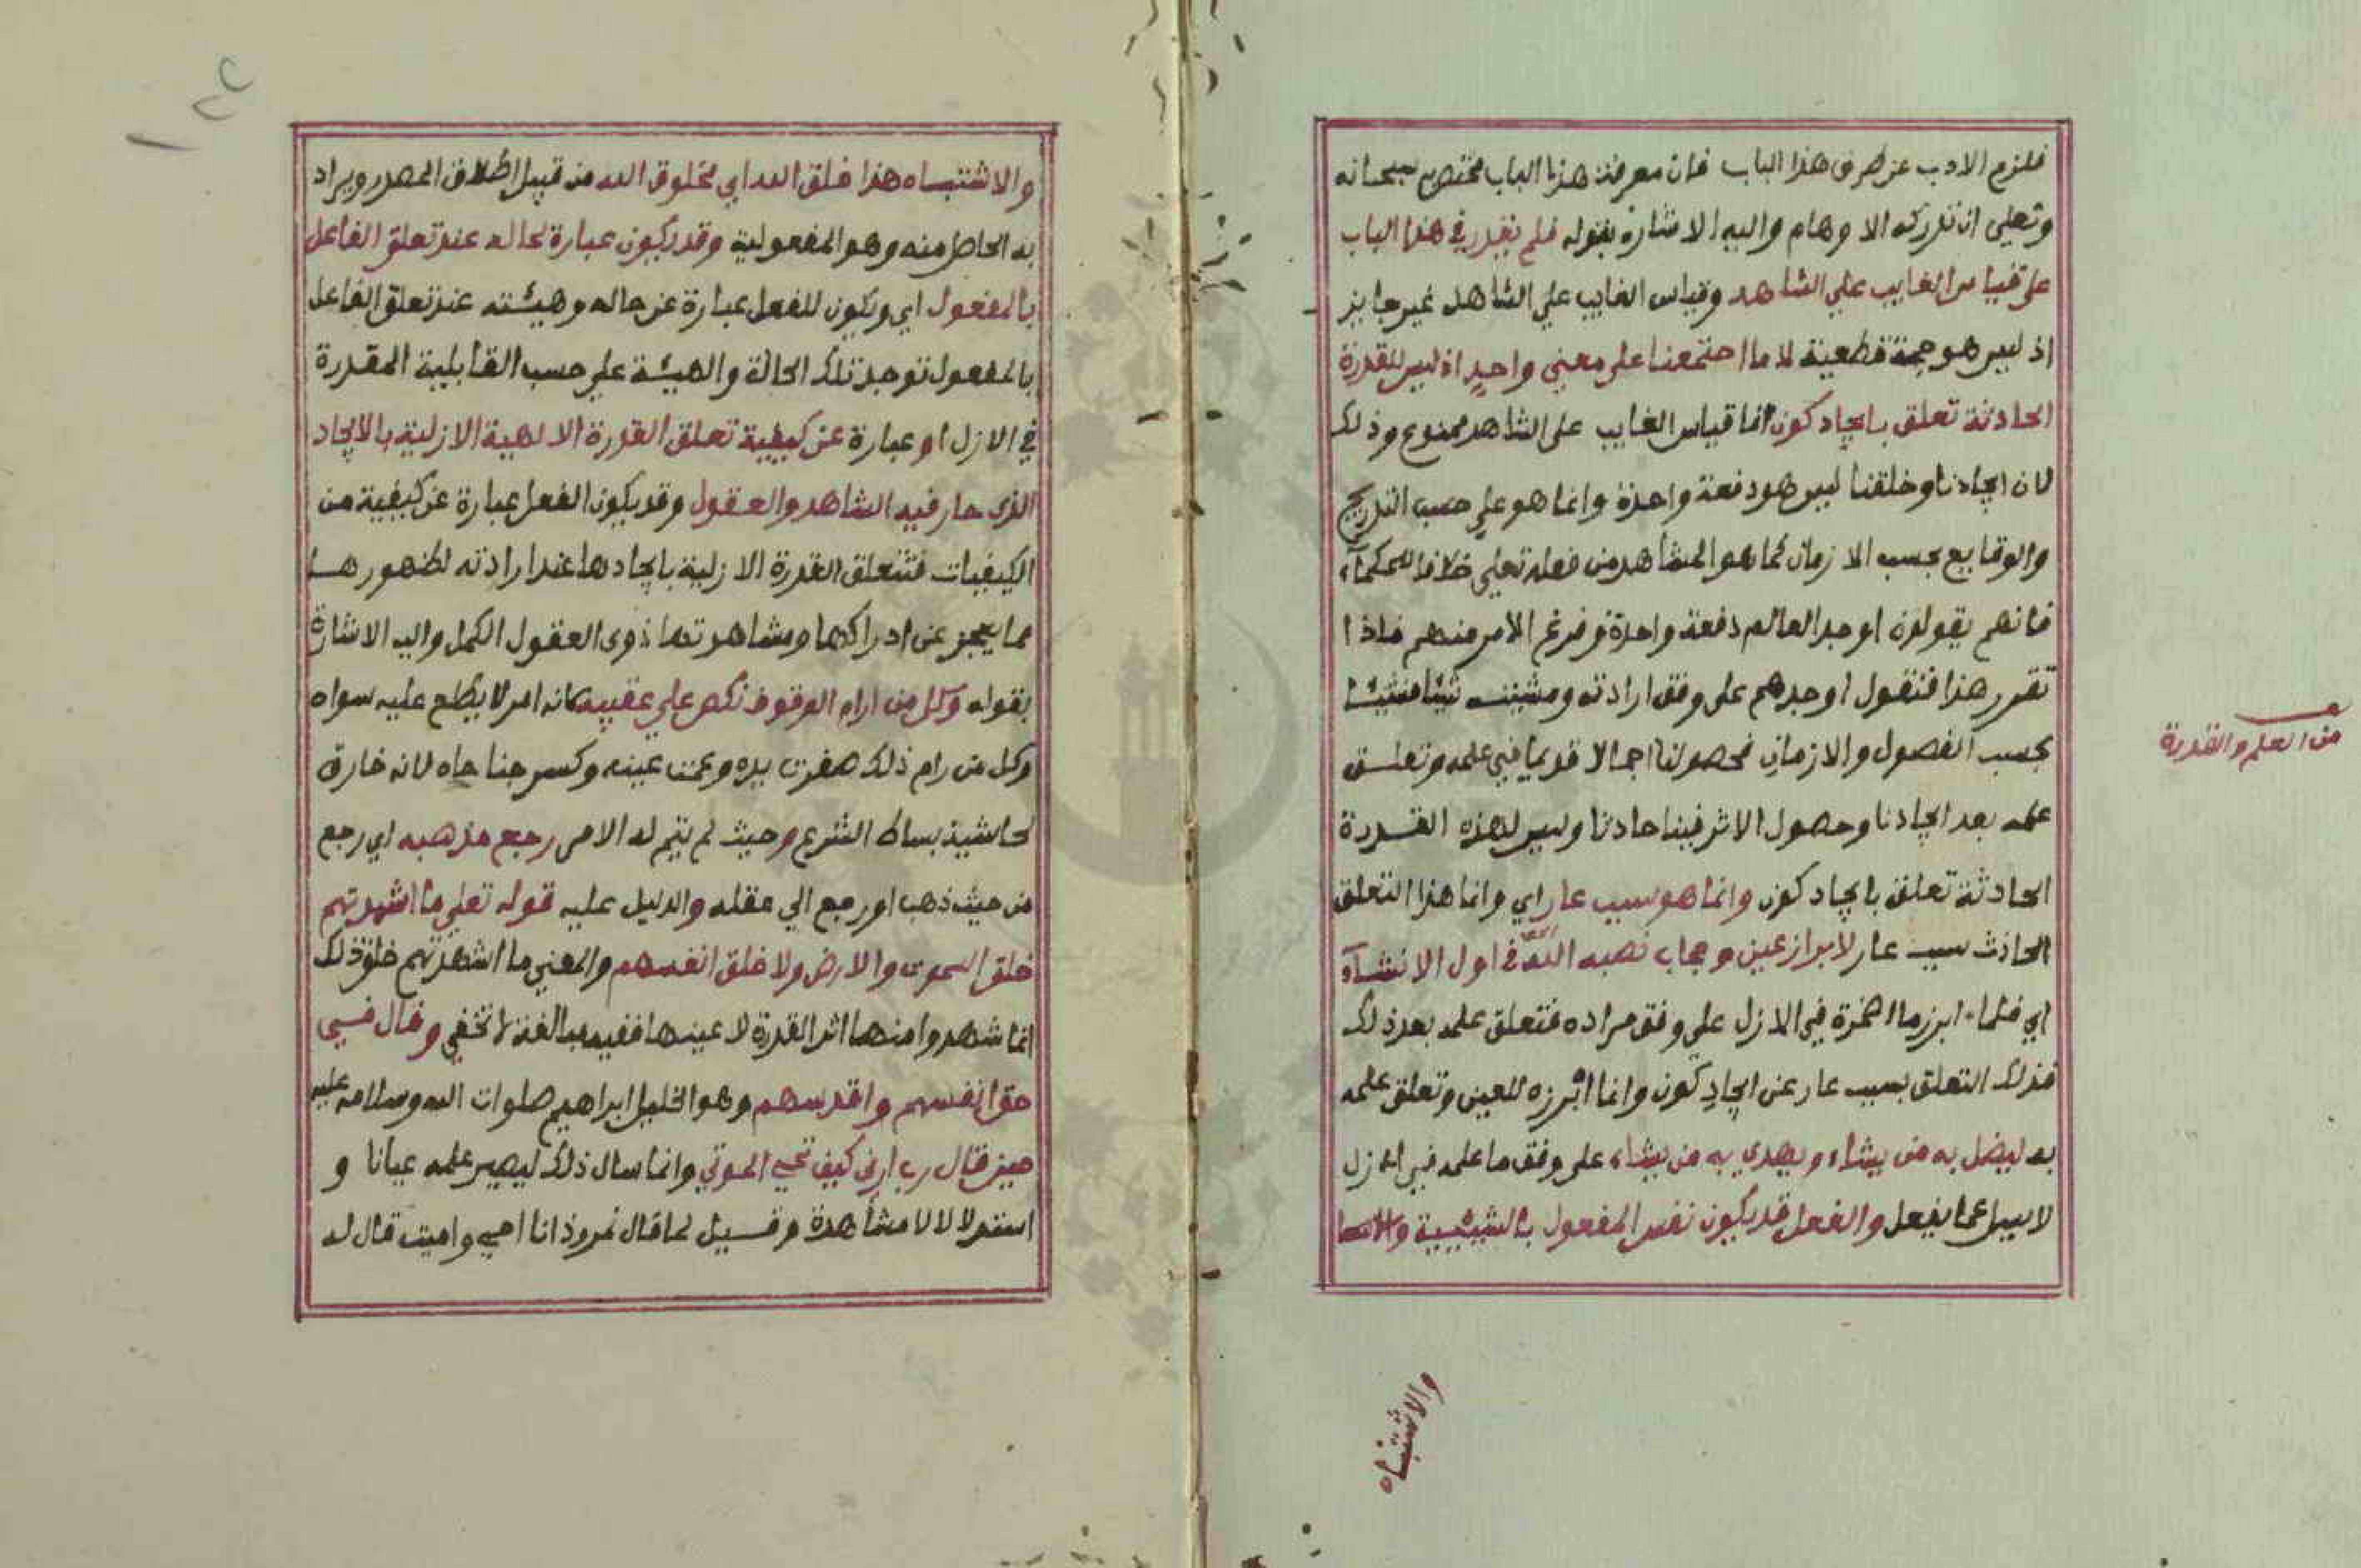 فلزم الادب عن طرق هذا الباب فان معرفة هذا الباب مختص به سبحانه
وتعلى ان تدركه الاوهام واليه الاشارة بقوله فلم نقدر في هذا الباب
على قياس الغايب علي الشاهد وقياس الغايب علي الشاهد غير جايز
اذ ليس هو حجة قطعية لا ما اجتمعنا على معني واحد اذ ليس للقدرة
الحادثة تعلق بايجاد كون انما قياس الغايب على الشاهد ممنوع وذلك
لان ايجادنا وخلقنا ليس هو دفعة واحدة وانما هو علي حسب التدريج
والوقايع بحسب الازمان كما هو المشاهد من فعله تعلي خلافا للحكماء
فانهم يقولون اوجد العالم دفعة واحدة وفرغ الامر منهم فاذا
تقرر هذا فنقول اوجدهم على وفق ارادته ومشيئته شيئا فشيئا
بحسب الفصول والازمان فحصولنا اجمالا قديما في علمه وتعلق
علمه بعد ايجادنا وحصول الاثر فينا حادثا وليس لهذه القدرة
الحادثة تعلق بايجاد كون وانما هو سبب عار اي وانما هذا التعلق
الحادث سبب عار لابراز عين وحجاب نصبه الله في اول الانشاء
اي فلما ابرز ما في الازل علي وفق مراده فتعلق علمه بعد ذلك
فذلك التعلق بسبب عار عن ايجاد كون وانما ابرزه للعين وتعلق علمه
به ليضل به من يشاء ويهدي به من يشاء على وفق ما علمه في الازل
لا يسل عما يفعل والفعل قد يكون نفس المفعول بالشيئية
والاشتباه
من العلم والقدرة
والاشتباه هذا خلق الله اي مخلوق الله من قبيل اطلاق المصدر ويراد
به الحاصل منه وهو المفعولية وقد يكون عبارة لحاله عند تعلق الفاعل
بالمفعول اي ويكون للفعل عبارة عن حاله وهيئته عند تعلق الفاعل
بالمفعول توجد تلك الحالة والهيئة علي حسب القابلية المقدرة
في الازل او عبارة عن كيفية تعلق القدرة الالهية الازلية بالايجاد
الذى حار فيه الشاهد والعقول وقد يكون الفعل عبارة عن كيفية من
الكيفيات فتتعلق القدرة الازلية بايجادها عند ارادته لظهورها
مما يعجز عن ادراكها ومشاهدتها ذوى العقول الكمل واليه الاشارة
بقوله وكل من رام الوقوف نكص علي عقبيه كانه امر لا يطلع عليه سواه
وكل من رام ذلك صفرت يده وعمت عينه وكسر جناحاه لانه خارق
لحاشية بساط الشرع وحيث لم يتم له الامر رجع مذهبه اي رجع
من حيث ذهب او رجع الي عقله والدليل عليه قوله تعلي ما اشهدتهم
خلق السموت والارض ولا خلق انفسهم والمعني ما اشهدتهم خلق ذلك
انما شهدوا منها اثر القدرة لا عينها ففيه مبالغة لا تخفي وقال في
حق انفسهم واقدسهم وهو الخليل ابراهيم صلوات الله وسلامه عليه
حين قال رب ارني كيف تحي الموتي وانما سال ذلك ليصير علمه عيانا و
استدلالا لا مشاهدة وقيل لما قال نمروذ انا احيي واميت قال له